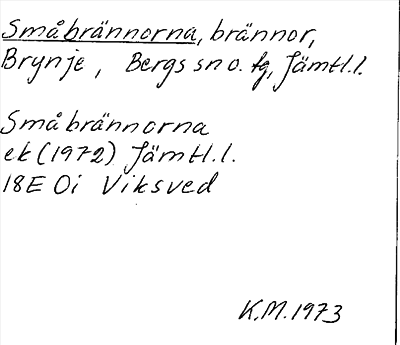 Småbrännorna, brännor,
Brynje, Bergs sn o. tg, Jämtl.l.
Småbrännorna
ek (1972) Jämtl.l.
18E 0i Viksved
K.M. 1973